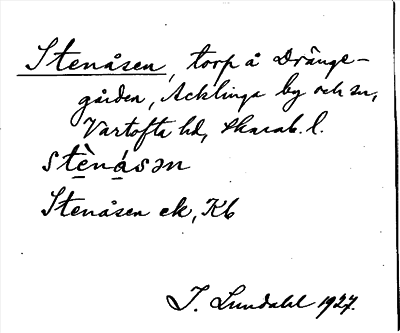 Stenåsen, torp å Dränge-
gården, Acklinga by och sn,
Vartofta hd, Skarab. l.
stènásən
Stenåsen ek, Kb
I. Lundahl 1927.